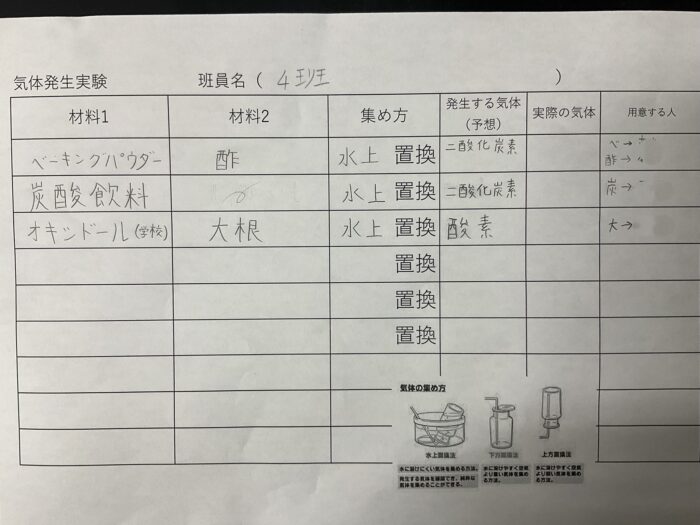 気体発生実験 班員名 ( 4班 )
材料1 材料2 集め方 発生する気体(予想) 実際の気体 用意する人
ベーキングパウダー 酢 水上 置換 二酸化炭素 ベ→
酢→
炭酸飲料 水上 置換 二酸化炭素 炭→
オキシドール(学校) 大根 水上 置換 酸素 大→
置換
置換
置換
気体の集め方
水上置換法 下方置換法 上方置換法
水に溶けにくい気体を集める方法。
発生する気体を確認でき、純粋な
気体を集めることができる。
水に溶けやすく空気
より重い気体を集め
る方法。
水に溶けやすく空気
より軽い気体を集め
る方法。